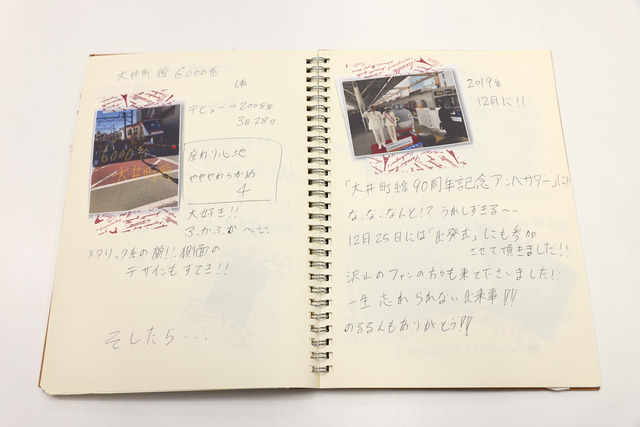 大井町線 6000系
6両
デビュー→2008年
3月28日
6000系
大井町線
座わり心地
ややややわらかめ
4
大好き!!
ふかふか〜
メタリック系の顔!! 側面の
デザインもすてき!!
そしたら・・・
2019年
12月に!!
「大井町線90周年記念アンバサダー」に!
な、な、なんと!? うれしすぎる〜
12月25日には「出発式」にも参加
させて頂きました!!
沢山のファンの方々も来て下さいました!
一生忘れられない出来事!!
のるるんもありがとう!!